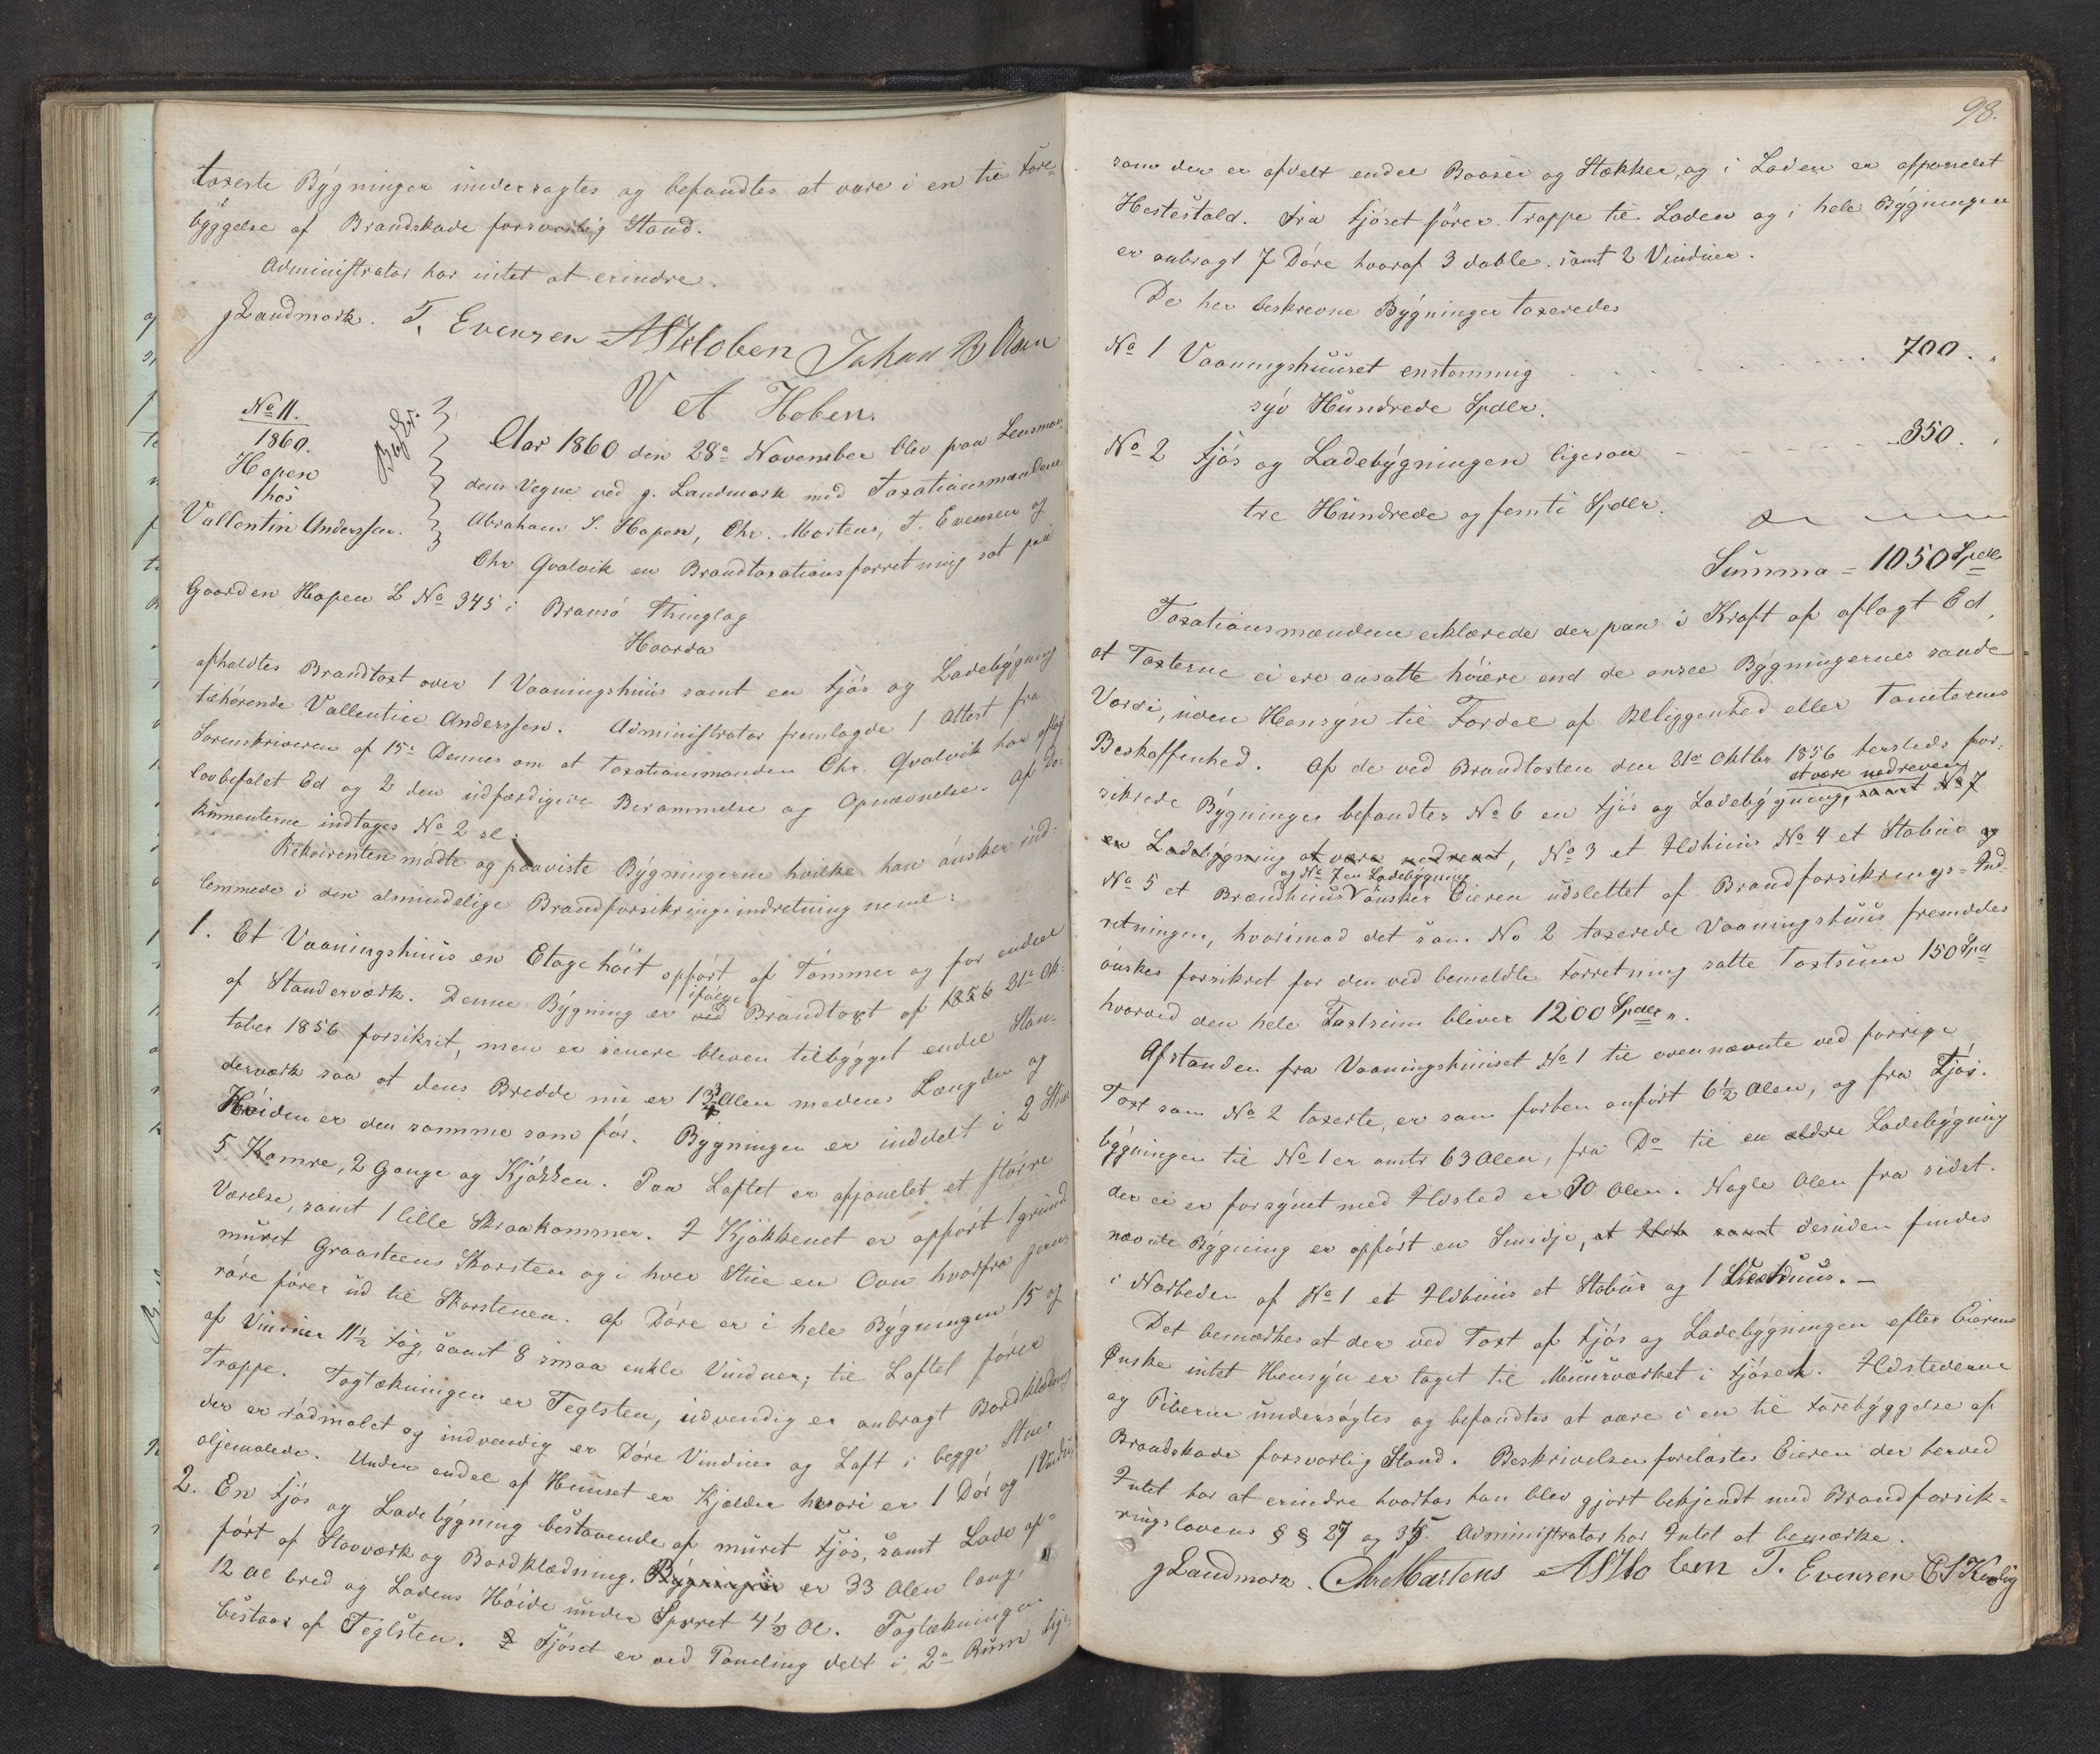 taxerte Bygninger undersøgtes og befandtes at være i en til Fore-
byggelse af Brandskade forsvarlig Stand.
Administrator har intet at erindre.
gLandmark. T. Evensen ASHoben Johan B Olsen
V A Hoben.
No 11.
1860.
Hopen
hos
Vallentin Anderssen.
Aar 1860 den 28de November blev paa Lensman-
dens Vegne ved g. Landmark med Taxationsmændene
Abraham S. Hopen, Chr. Martens, T. Evensen og
Chr Qvalvik en Brandtaxationsforretning sat paa
Gaarden Hopen L No 345 i Bramsø Thinglag
Hvorda
afholdtes Brandtaxt over 1 Vaaningshuus samt en Fjøs og Ladebygning
tilhørende Vallentin Anderssen. Administrator fremlagde 1 Attest fra
Sorenskriveren af 15de Dennes om at Taxationsmanden Chr. Qvalvik har aflagt
lovbefalet Ed og 2 den udfærdigede Berammelse og Opnævnelse. Af Do-
kumenterne indtages No 2 sl:
Rekvirenten mødte og paaviste Bygningerne hvilke han ønsker ind-
lemmede i den almindelige Brandforsikringsindretning neml:
1. Et Vaaningshuus en Etage høit opført af Tømmer og for endeel
af Standerværk. Denne Bygning er ved ifølge Brandtaxt af 1856 21de Ok-
tober 1856 forsikret, men er senere bleven tilbygget endel Stan-
derværk saa at dens Bredde nu er 13 3/4 Alen medens Længden og
Høiden er den samme som før. Bygningen er inddelt i 2 Stuer
5 Kamre, 2 Gange og Kjøkken. Paa Loftet er afpanelet et større
Værelse, samt 1 lille Skraakammer. I Kjøkkenet er opført 1 grund-
muret Graasteens Skorsten og i hver Stue en Ovn hvorfra Jern-
røre fører ud til Skorstenen. Af Døre er i hele Bygningen 15 og
af Vinduer 11 1/2 Fag, samt 8 smaa enkle Vinduer; til Loftet fører
Trappe. Tagtækningen er Teglsten, udvendig er anbragt Bordklædning
der er rødmalet og indvendig er Døre Vinduer og Loft i begge Stuer
oljemalede. Under endel af Huuset er Kjælder hvori er 1 Dør og 1 Vindue
2. En Fjøs og Ladebygning bestaaende af muret Fjøs, samt Lade op-
ført af Stavværk og Bordklædning. Bygningen er 33 Alen lang,
12 Al bred og Ladens Høide under Sperret 4 1/2 Al. Tagtækningen
bestaar af Teglsten. I Fjøset er ved Paneling delt i 2de Rum lige-
98.
som der er afdelt endel Baaser og Stækker, og i Laden er afpanelet
Hestestald. Fra Fjøset fører Trappe til Laden og i hele Bygningen
er anbragt 7 Døre hvoraf 3 doble samt 2 Vinduer.
De her beskrevne Bygninger taxeredes
No 1 Vaaningshuuset enstemmig . . . . . . 700.
syv Hundrede Spdlr.
No 2 Fjøs og Ladebygningen ligesaa - - - - 350.
tre Hundrede og femti Spdlr.
Summa = 1050 Spdlr
Taxationsmændene erklærede derpaa i Kraft af aflagt Ed,
at Taxterne ei ere ansatte høiere end de ansee Bygningernes sande
Værdi, uden Hensyn til Fordel af Beliggenhed eller Tomternes
Beskaffenhed. Af de ved Brandtaxten den 21de Oktbr 1856 hersteds for-
at være nedreven,
sikrede Bygninger befandtes No 6 en Fjøs og Ladebygning, samt No 7
en Ladebygning at være nedrevet, No 3 et Ildhuus No 4 et Stabur og
og No 7 en Ladebygning
No 5 et Brændhuus ønsker Eieren udslettet af Brandforsikrings-Ind-
retningen, hvorimod det som No 2 taxerede Vaaningshuus fremdeles
ønskes forsikret for den ved bemeldte Forretning satte Taxtsum 150 Spd
hvorved den hele Taxtsum bliver 1200 Spdlr.
Afstanden fra Vaaningshuuset No 1 til ovennævnte ved forrige
Taxt som No 2 taxerte, er som forhen anført 6 1/2 Alen, og fra Fjøs-
bygningen til No 1 er omtr 63 Alen, fra Do til en ældre Ladebygning
der ei er forsynet med Ildsted er 30 Alen. Nogle Alen fra sidst-
nævnte Bygning er opført en Smidje, at samt desuden findes
i Nærheden af No 1 et Ildhuus et Stabur og 1
Det bemærkes at der ved Taxt af Fjøs og Ladebygningen efter Eierens
Ønske intet Hensyn er taget til Muurværket i Fjøset. Ildstederne
og Piberne undersøgtes og befandtes at være i en til Forebyggelse af
Brandskade forsvarlig Stand. Beskrivelsen forelæstes Eieren der herved
Intet har at erindre hvorhos han blev gjort bekjendt med Brandforsik-
ringslovens § § 27 og 35. Administrator har Intet at bemærke.
gLandmark. ChrMartens ASHoben T. Evensen